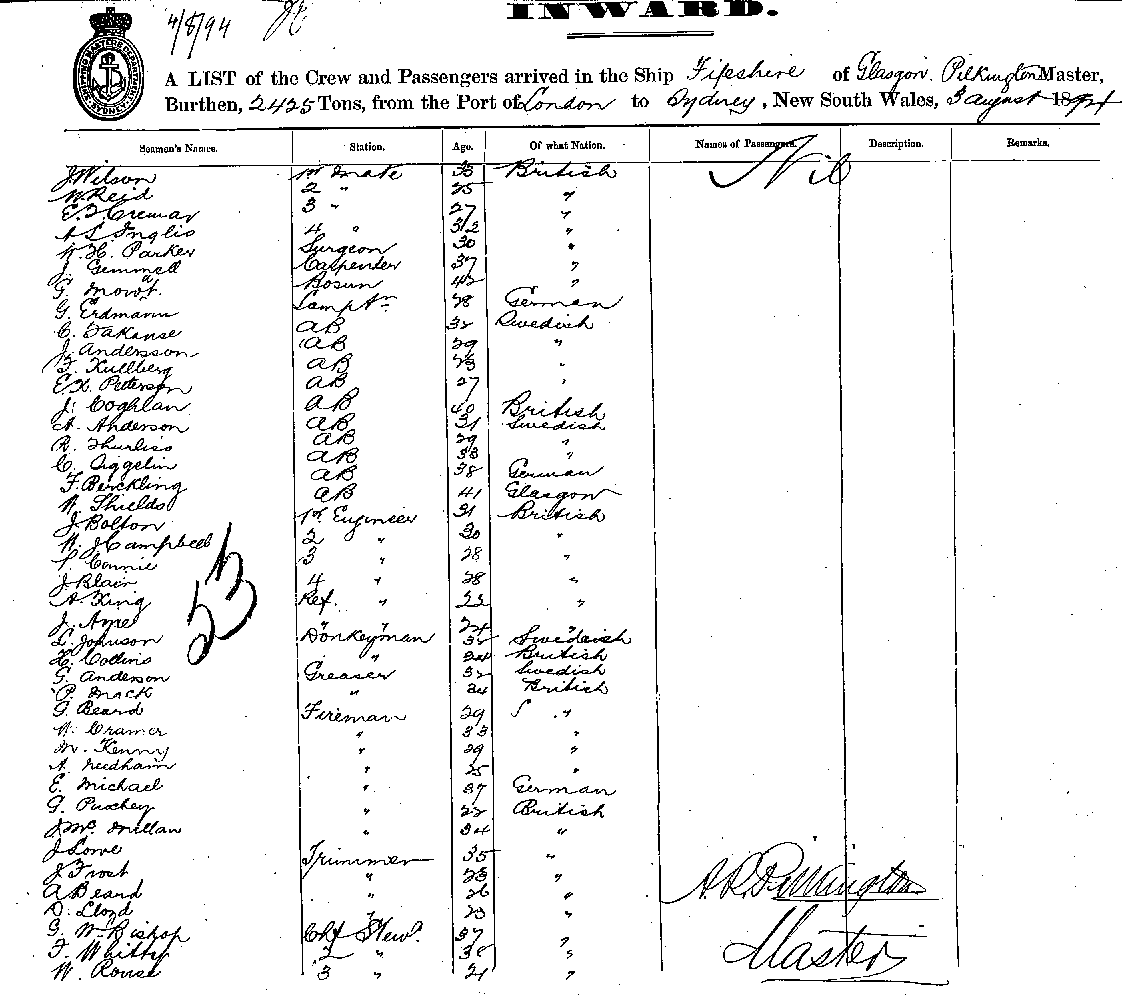 4/8/94
INWARD.
A LIST of the Crew and Passengers arrived in the Ship Fifeshire of Glasgow. Pilkington Master,
Burthen, 2425 Tons, from the Port of London to Sydney, New South Wales, 3 August 1894
Seamen's Names. Station. Age. Of what Nation. Names of Passengers. Description. Remarks.
J Wilson 1st Mate 33 British Nil
W Reid 2 " 25 "
3 " 27 "
A S Inglis 4 " 32 "
W. H. Parker Surgeon 30 "
J. Gemmell Carpenter 37 "
G. Mowat Bosun 42 "
G. Erdmann Lamptr 28 German
C. AB 32 Swedish
J. Andersson AB 29 "
F. Kullberg AB 23 "
E. K. Petterson AB 27 "
J. Coghlan AB 40 British
A. Anderson AB 31 Swedish
R. AB 29 "
C. AB 33 "
F. Berckling AB 38 German
W. Shields AB 41 Glasgow
J Bolton 1st Engineer 31 British
W. J Campbell 2 " 30 "
3 " 28 "
J Blair 4 " 28 "
A. King Ref. " 23 "
J. " " 24 "
L. Johnson Donkeyman 32 Swedish
H. Collins " 24 British
G. Anderson Greaser 32 Swedish
P. Mack " 34 British
G. Beard Fireman 29 "
W. Cramer " 33 "
M. Kenny " 29 "
A. Needham " 25 "
E. Michael " 37 German
G. Puxley " 22 British
J Mc Millan " 34 "
J Lowe Trimmer 35 "
J Frost " 23 "
A Beard " 26 "
D. Lloyd " 23 "
G. W. Bishop Chf Stewd. 37 "
F. Whitty 2 " 38 "
W. Rouse 3 " 21 "
53
A. R. Pilkington
Master